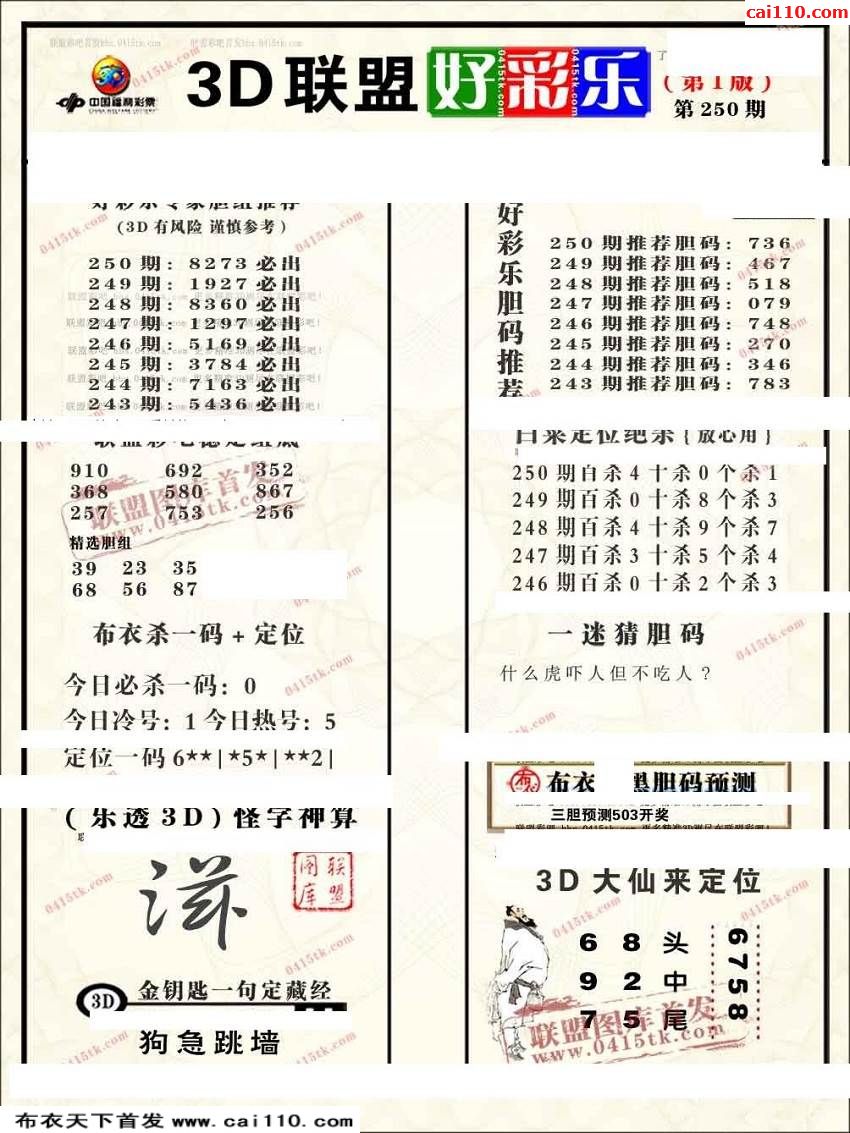 cai110.com
联盟彩吧首发bbs.0415tk.com
中国福利彩票
3D联盟好彩乐
0415tk.com
0415tk.com
0415tk.com
(第1版)
第250期
好彩乐专家胆组推荐
(3D有风险 谨慎参考)
250期:8273必出
249期:1927必出
248期:8360必出
247期:1297必出
246期:5169必出
245期:3784必出
244期:7163必出
243期:5436必出
910 692 352
368 580 867
257 753 256
精选胆组
39 23 35
68 56 87
布衣杀一码+定位
今日必杀一码:0
今日冷号:1今日热号:5
定位一码6**|*5*|**2|
(乐透3D)怪字神算
滋
联盟图库
3D 金钥匙一句定藏经
狗急跳墙
好彩乐胆码推荐
250期推荐胆码:736
249期推荐胆码:467
248期推荐胆码:518
247期推荐胆码:079
246期推荐胆码:748
245期推荐胆码:270
244期推荐胆码:346
243期推荐胆码:783
白菜定位绝杀{放心用}
250期百杀4十杀0个杀1
249期百杀0十杀8个杀3
248期百杀4十杀9个杀7
247期百杀3十杀5个杀4
246期百杀0十杀2个杀3
一迷猜胆码
什么虎吓人但不吃人?
布衣 胆码预测
三胆预测503开奖
3D大仙来定位
6 8 头
9 2 中
7 5 尾
6758
联盟图库首发
www.0415tk.com
联盟图库首发
www.0415tk.com
布衣天下首发 www.cai110.com